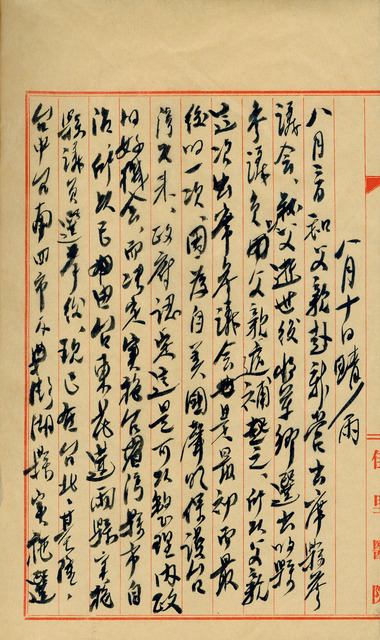 八月十日 晴，雨
八月三日和父親赴新營出席縣參
議會、叔父逝世後將軍鄉選出的縣
參議員由父親遞補、所以父親
這次出席參議會也是最初而最
後的一次、因為自美國聲明保護台
灣以來、政府認定這是可以整理內政
的好機會、而決定實施台灣縣市自
治、所以已經由台東花蓮兩縣實施
縣議員選舉後、現已在台北、基隆、
台中台南四市及澎湖縣實施選
佳里醫院